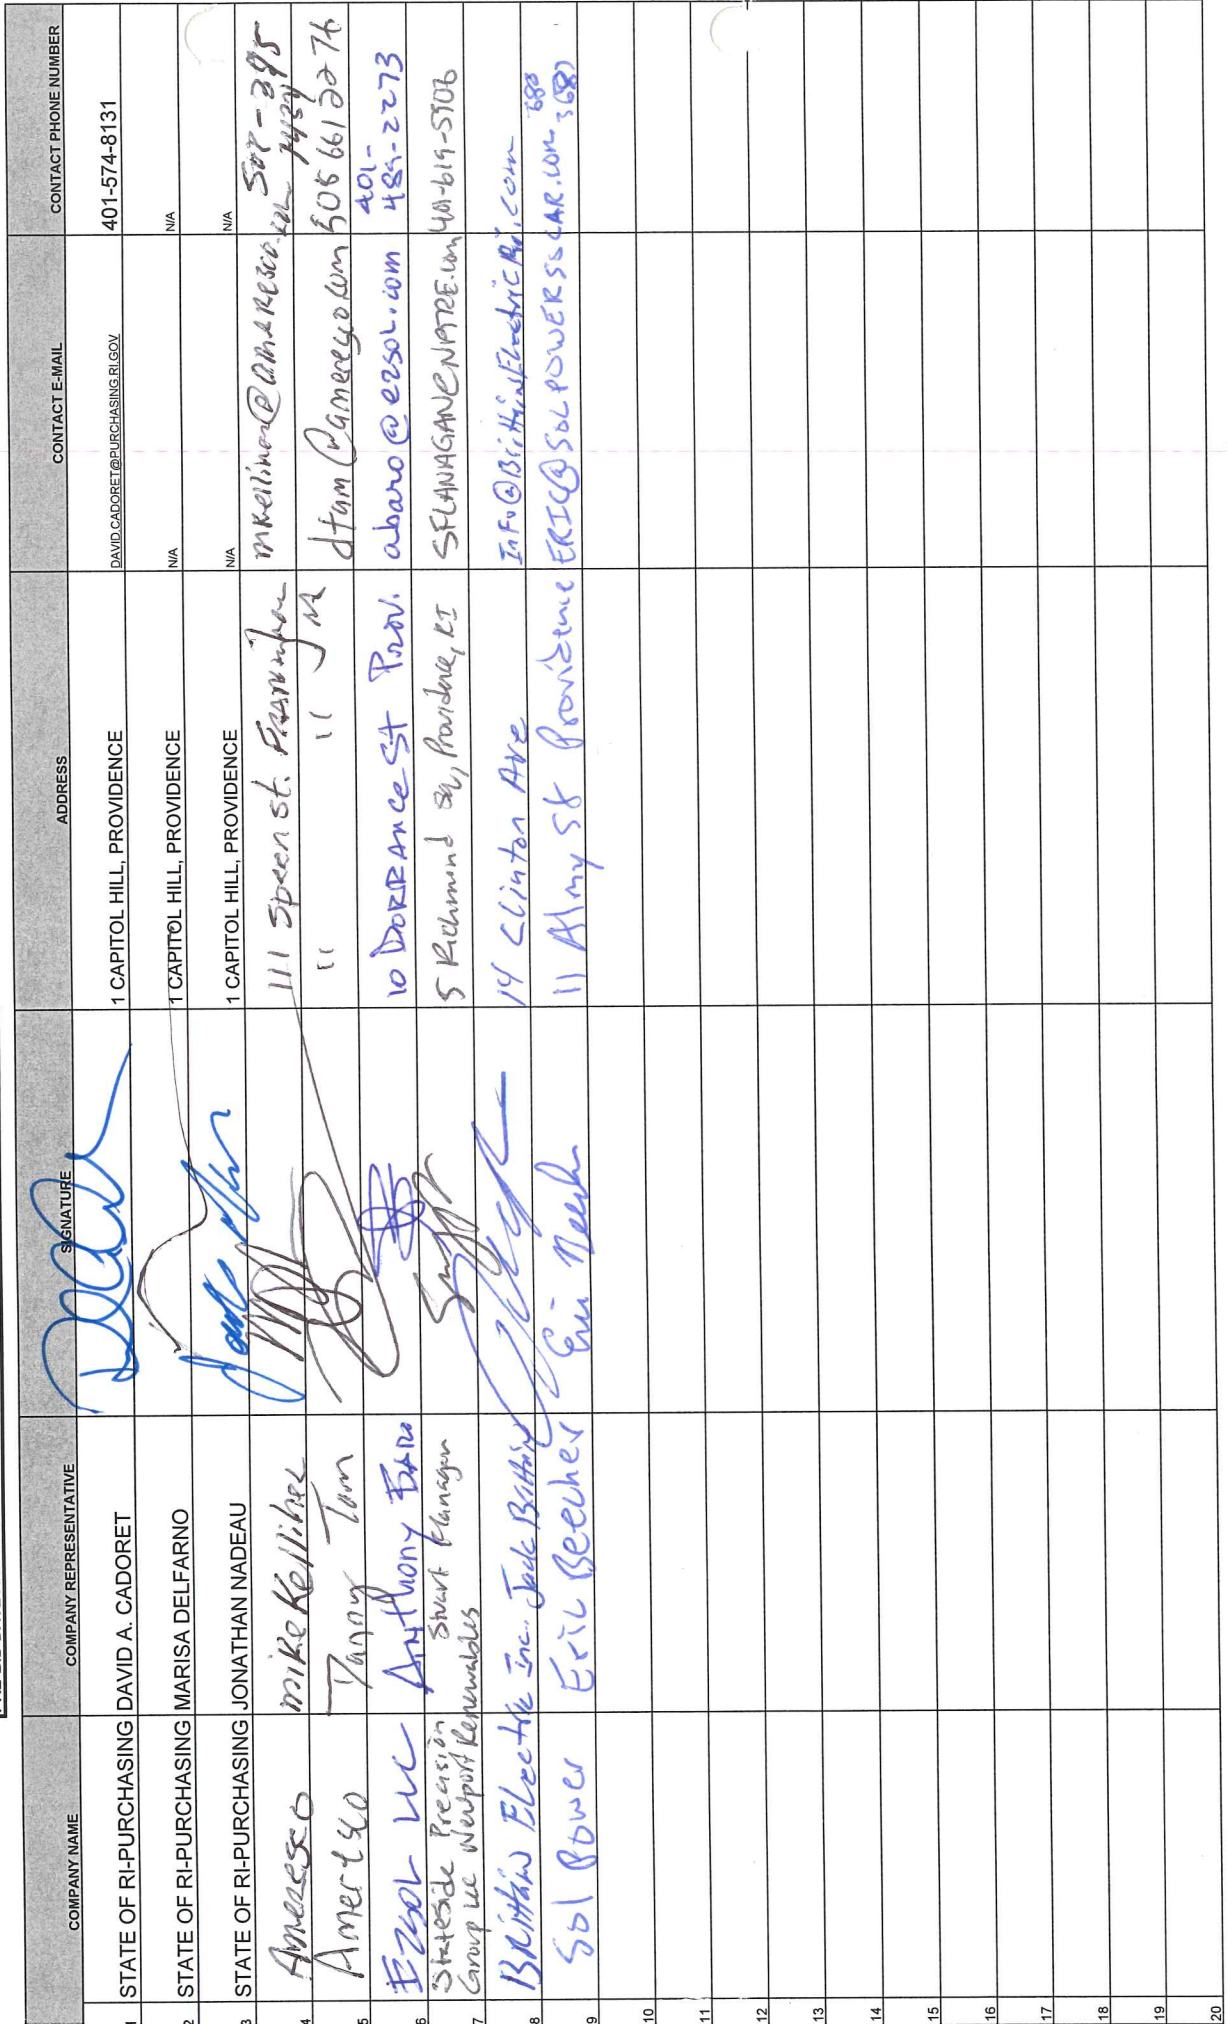 COMPANY NAME COMPANY REPRESENTATIVE SIGNATURE ADDRESS CONTACT E-MAIL CONTACT PHONE NUMBER
1 STATE OF RI-PURCHASING DAVID A. CADORET 1 CAPITOL HILL, PROVIDENCE DAVID.CADORET@PURCHASING.RI.GOV 401-574-8131
2 STATE OF RI-PURCHASING MARISA DELFARNO 1 CAPITOL HILL, PROVIDENCE N/A N/A
3 STATE OF RI-PURCHASING JONATHAN NADEAU 1 CAPITOL HILL, PROVIDENCE N/A N/A
4 Ameresco mike Kelliher 111 Speen st. Framingham
5 Ameresco Danny Tam " " MA dtam@ameresco.com 508 661 2276
6 EZSOL LLC Anthony Baro 10 DORRANCE St Prov. abaro@ezsol.com 401-489-2273
7 Stateside Precision Group LLC Newport Renewables Stuart Flanagan 5 Richmond sq, Providence, RI 401-619-5906
8 Brittain Electric Inc. Jack Brittain 14 Clinton Ave Info@BrittainElectricRI.com
9 Sol Power Eric Beecher 11 Almy St Providence ERIC@SOLPOWERSOLAR.com
10
11
12
13
14
15
16
17
18
19
20